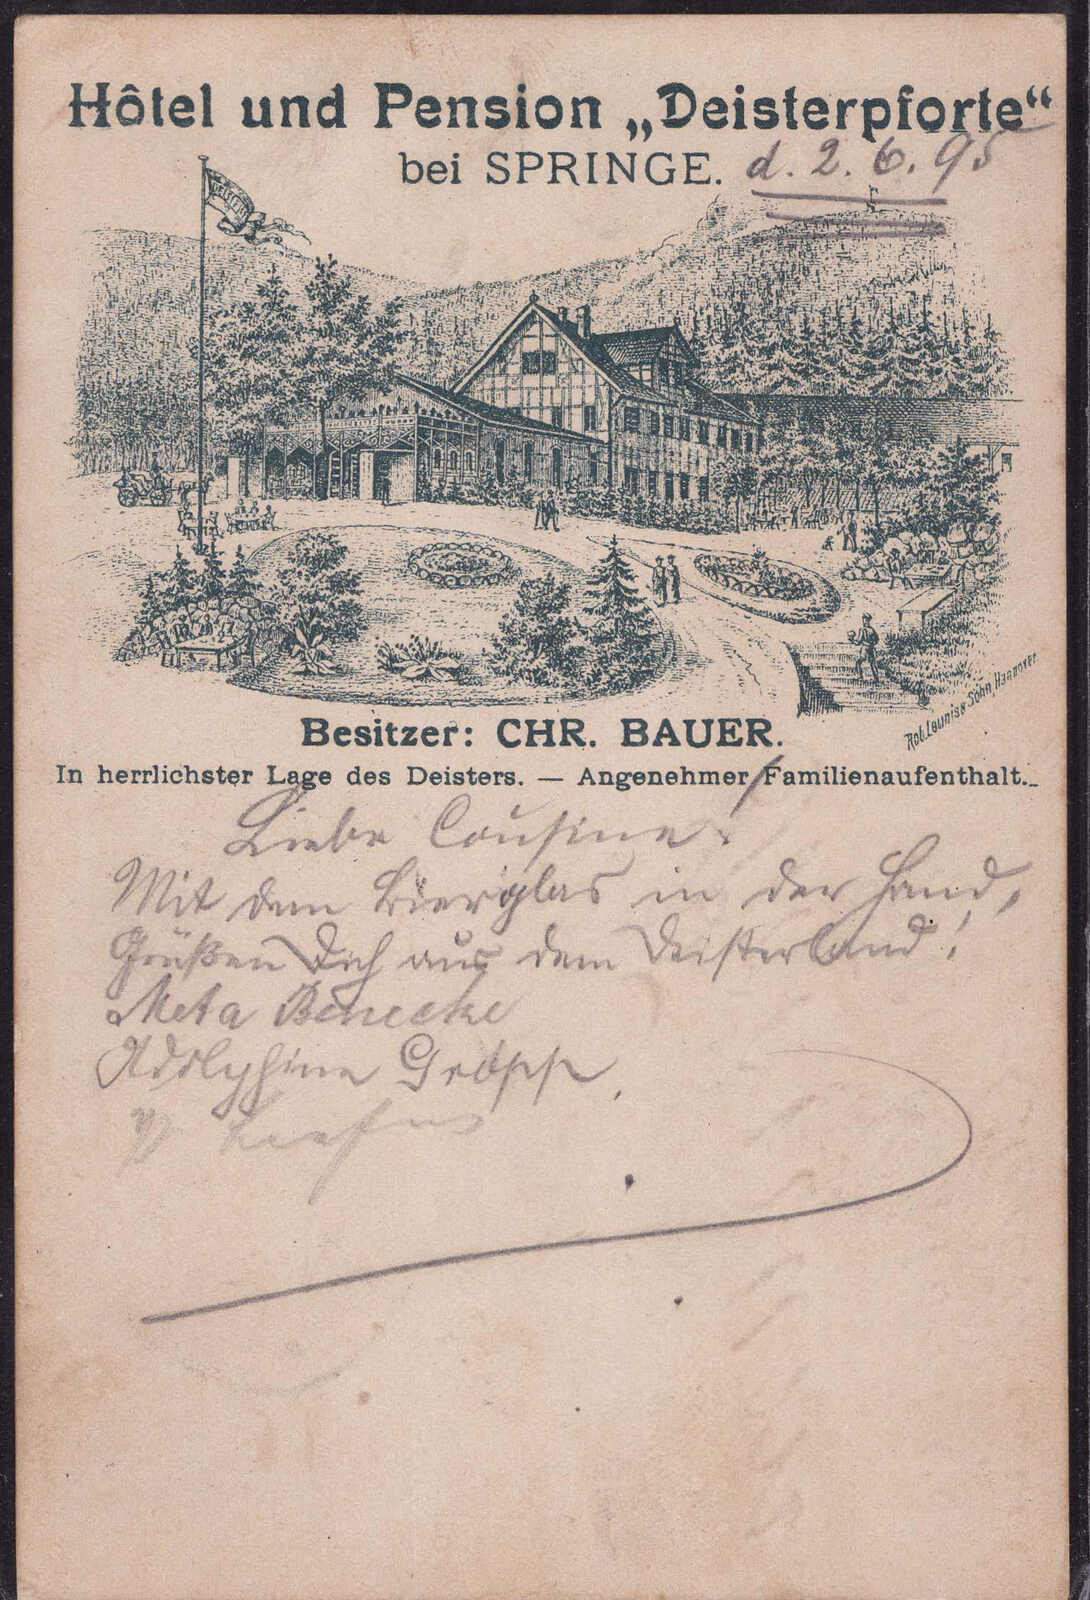 Hôtel und Pension „Deisterpforte“
bei SPRINGE.
d. 2. 6. 95
Rob. Leunis & Sohn, Hannover.
Besitzer: CHR. BAUER.
In herrlichster Lage des Deisters. — Angenehmer Familienaufenthalt.
Liebe Cousine!
Mit dem Bierglas in der Hand,
Grüßen Dich aus dem Deisterland!
Meta Benecke
Adolphine Gropp.